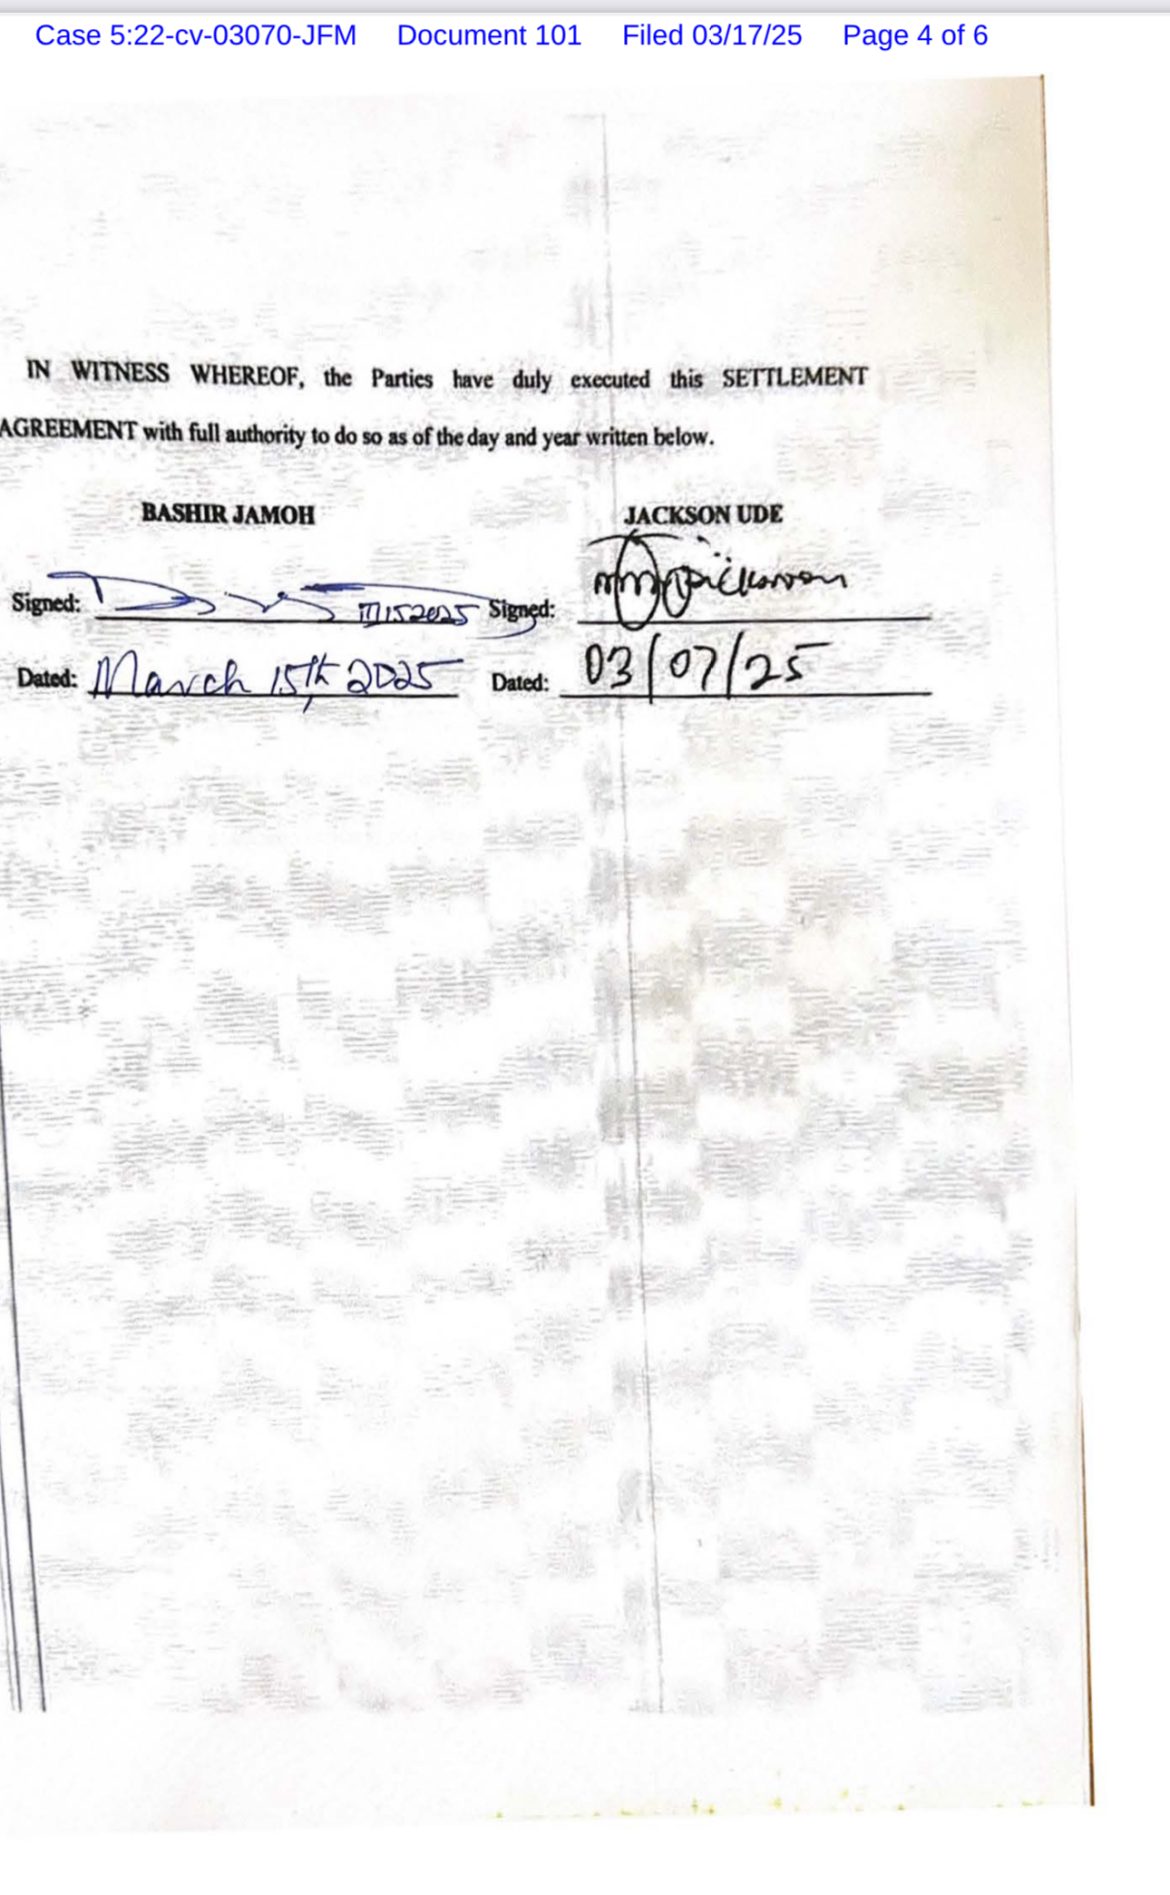 Case 5:22-cv-03070-JFM Document 101 Filed 03/17/25 Page 4 of 6
IN WITNESS WHEREOF, the Parties have duly executed this SETTLEMENT
AGREEMENT with full authority to do so as of the day and year written below.
BASHIR JAMOH JACKSON UDE
Signed: Signed:
Dated: March 15th, 2025 Dated: 03/07/25